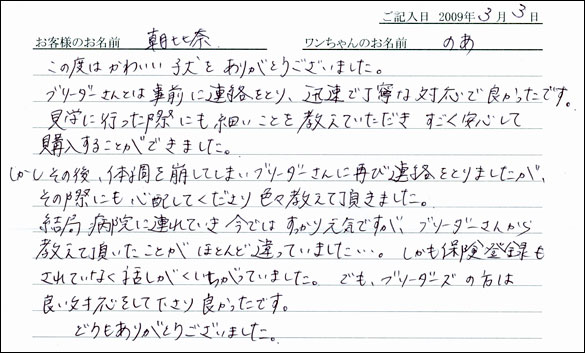 ご記入日 2009年3月3日
お客様のお名前 朝比奈 ワンちゃんのお名前 のあ
この度はかわいい子犬をありがとうございました。
ブリーダーさんとは事前に連絡をとり、迅速で丁寧な対応で良かったです。
見学に行った際にも細いことを教えていただきすごく安心して
購入することができました。
しかしその後、体調を崩してしまいブリーダーさんに再び連絡をとりましたが、
その際にも心配してくださり色々教えて頂きました。
結局病院に連れていき今ではすっかり元気ですが、ブリーダーさんから
教えて頂いたことがほとんど違っていました…。しかも保険登録も
されていなく話しがくいちがっていました。でも、ブリーダーズの方は
良い対応をして下さり良かったです。
どうもありがとうございました。